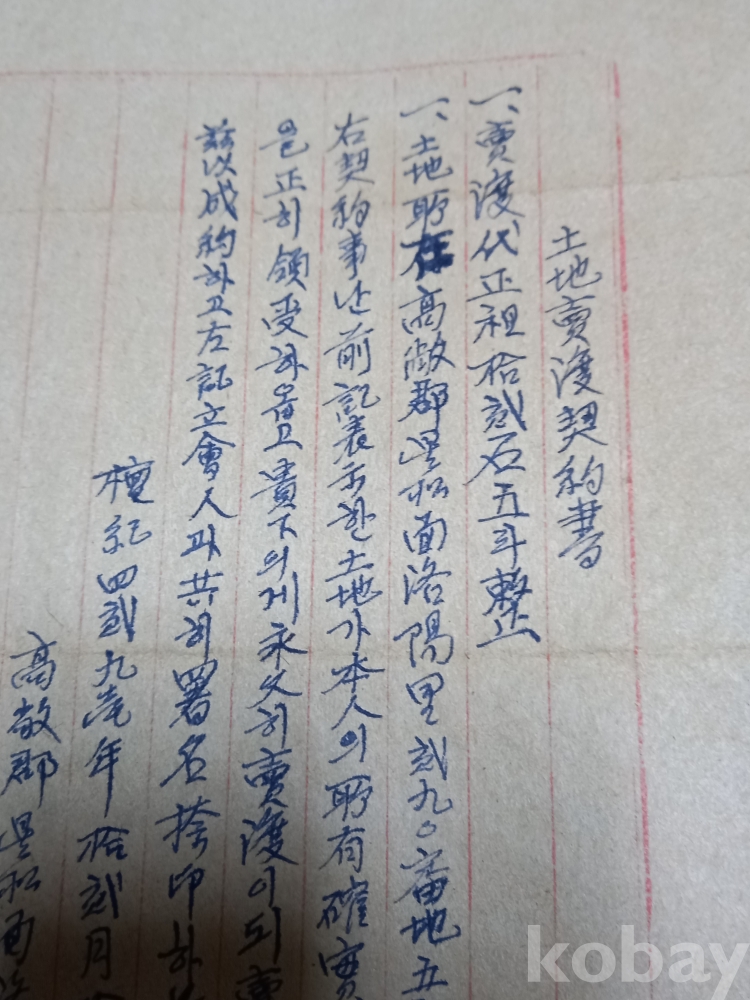 土地賣渡契約書
一、賣渡代正租拾貳石五斗整
一、土地所在高敞郡星松面洛陽里貳九○番地五
右契約事난前記表示한土地가本人의所有確實
을正히領受하옵고貴下의게永久히賣渡이되
玆以成約하고左記立會人과共히署名捺印하
檀紀四貳九壹年拾貳月
高敞郡星松面
kobay